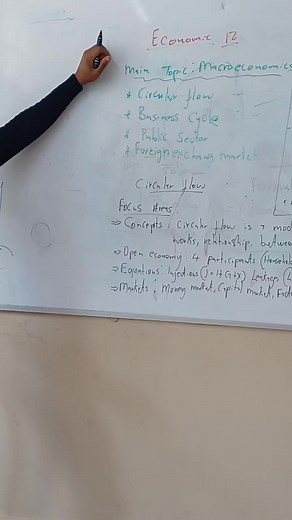 Economic 12
Main Topic: Macroeconomics
* Circular flow
* Business Cycle
* Public Sector
* Foreign exchang market
Circular flow
Focus Areas
⇒ Concepts: Circular flow is a mod
works, relationship between
⇒ Open economy 4 participants (Househol
⇒ Equations: Injections (J=I+G+X) Leakages (L
⇒ Markets: Money market, Capital market, Fact